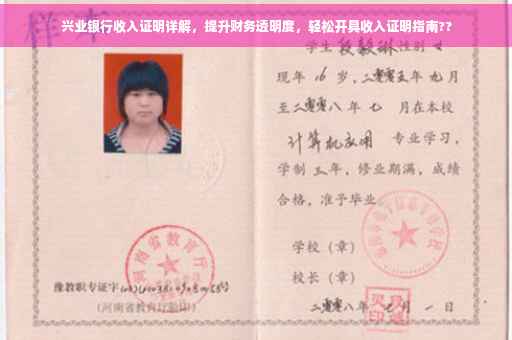 兴业银行收入证明详解，提升财务透明度，轻松开具收入证明指南??
学生段毅琳性别女
现年16岁，二零零五年九月
至二零零八年七月在本校
计算机应用 专业学习，
学制三年，修业期满，成绩
合格，准予毕业
学校（章）
校长（章）
二零零八年七月一日
河南省教育厅
豫教职专证字
（河南省教育厅验印）